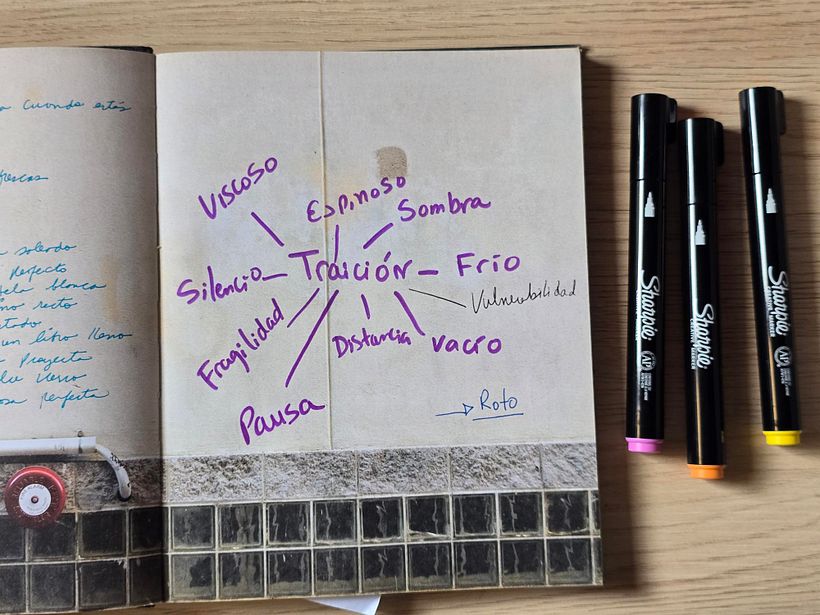 cuando estás
frescas
soleado
perfecto
blanca
recto
un libro lleno
Proyecto
lleno
perfecta
Viscoso
Espinoso
Sombra
Silencio
Traición
Frío
Vulnerabilidad
Fragilidad
Distancia
vacío
Pausa
Roto
Sharpie
AP
Sharpie
Sharpie
AP